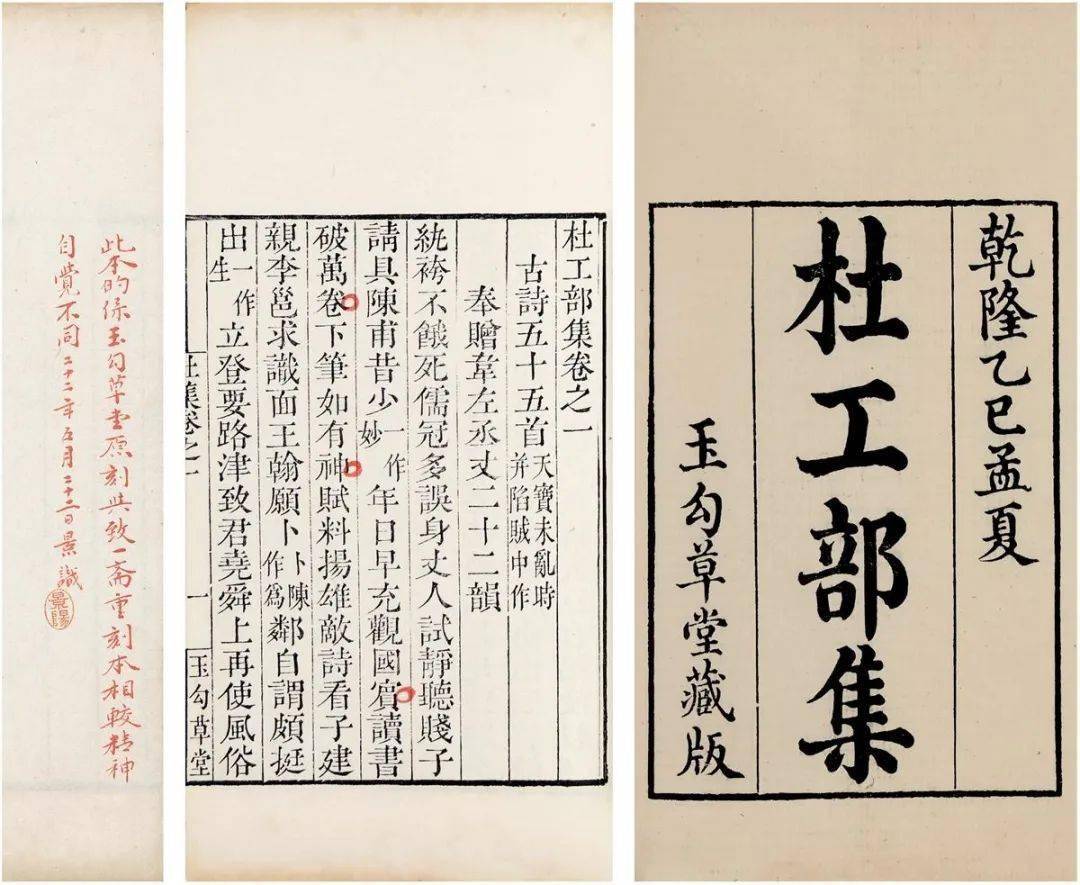 乾隆乙巳孟夏
杜工部集
玉勾草堂藏版
杜工部集卷之一
古詩五十五首天寶未亂時并陷賊中作
奉贈韋左丞丈二十二韻
紈袴不餓死儒冠多誤身丈人試靜聽賤子
請具陳甫昔少一作妙年日早充觀國賓讀書
破萬卷下筆如有神賦料揚雄敵詩看子建
親李邕求識面王翰願卜卜陳作爲鄰自謂頗挺
出一作生立登要路津致君堯舜上再使風俗
杜集卷之一 一 玉勾草堂
此本的係玉勾草堂原刻與致一斋重刻本相較精神
自覺不同二十二年五月二十三日景識